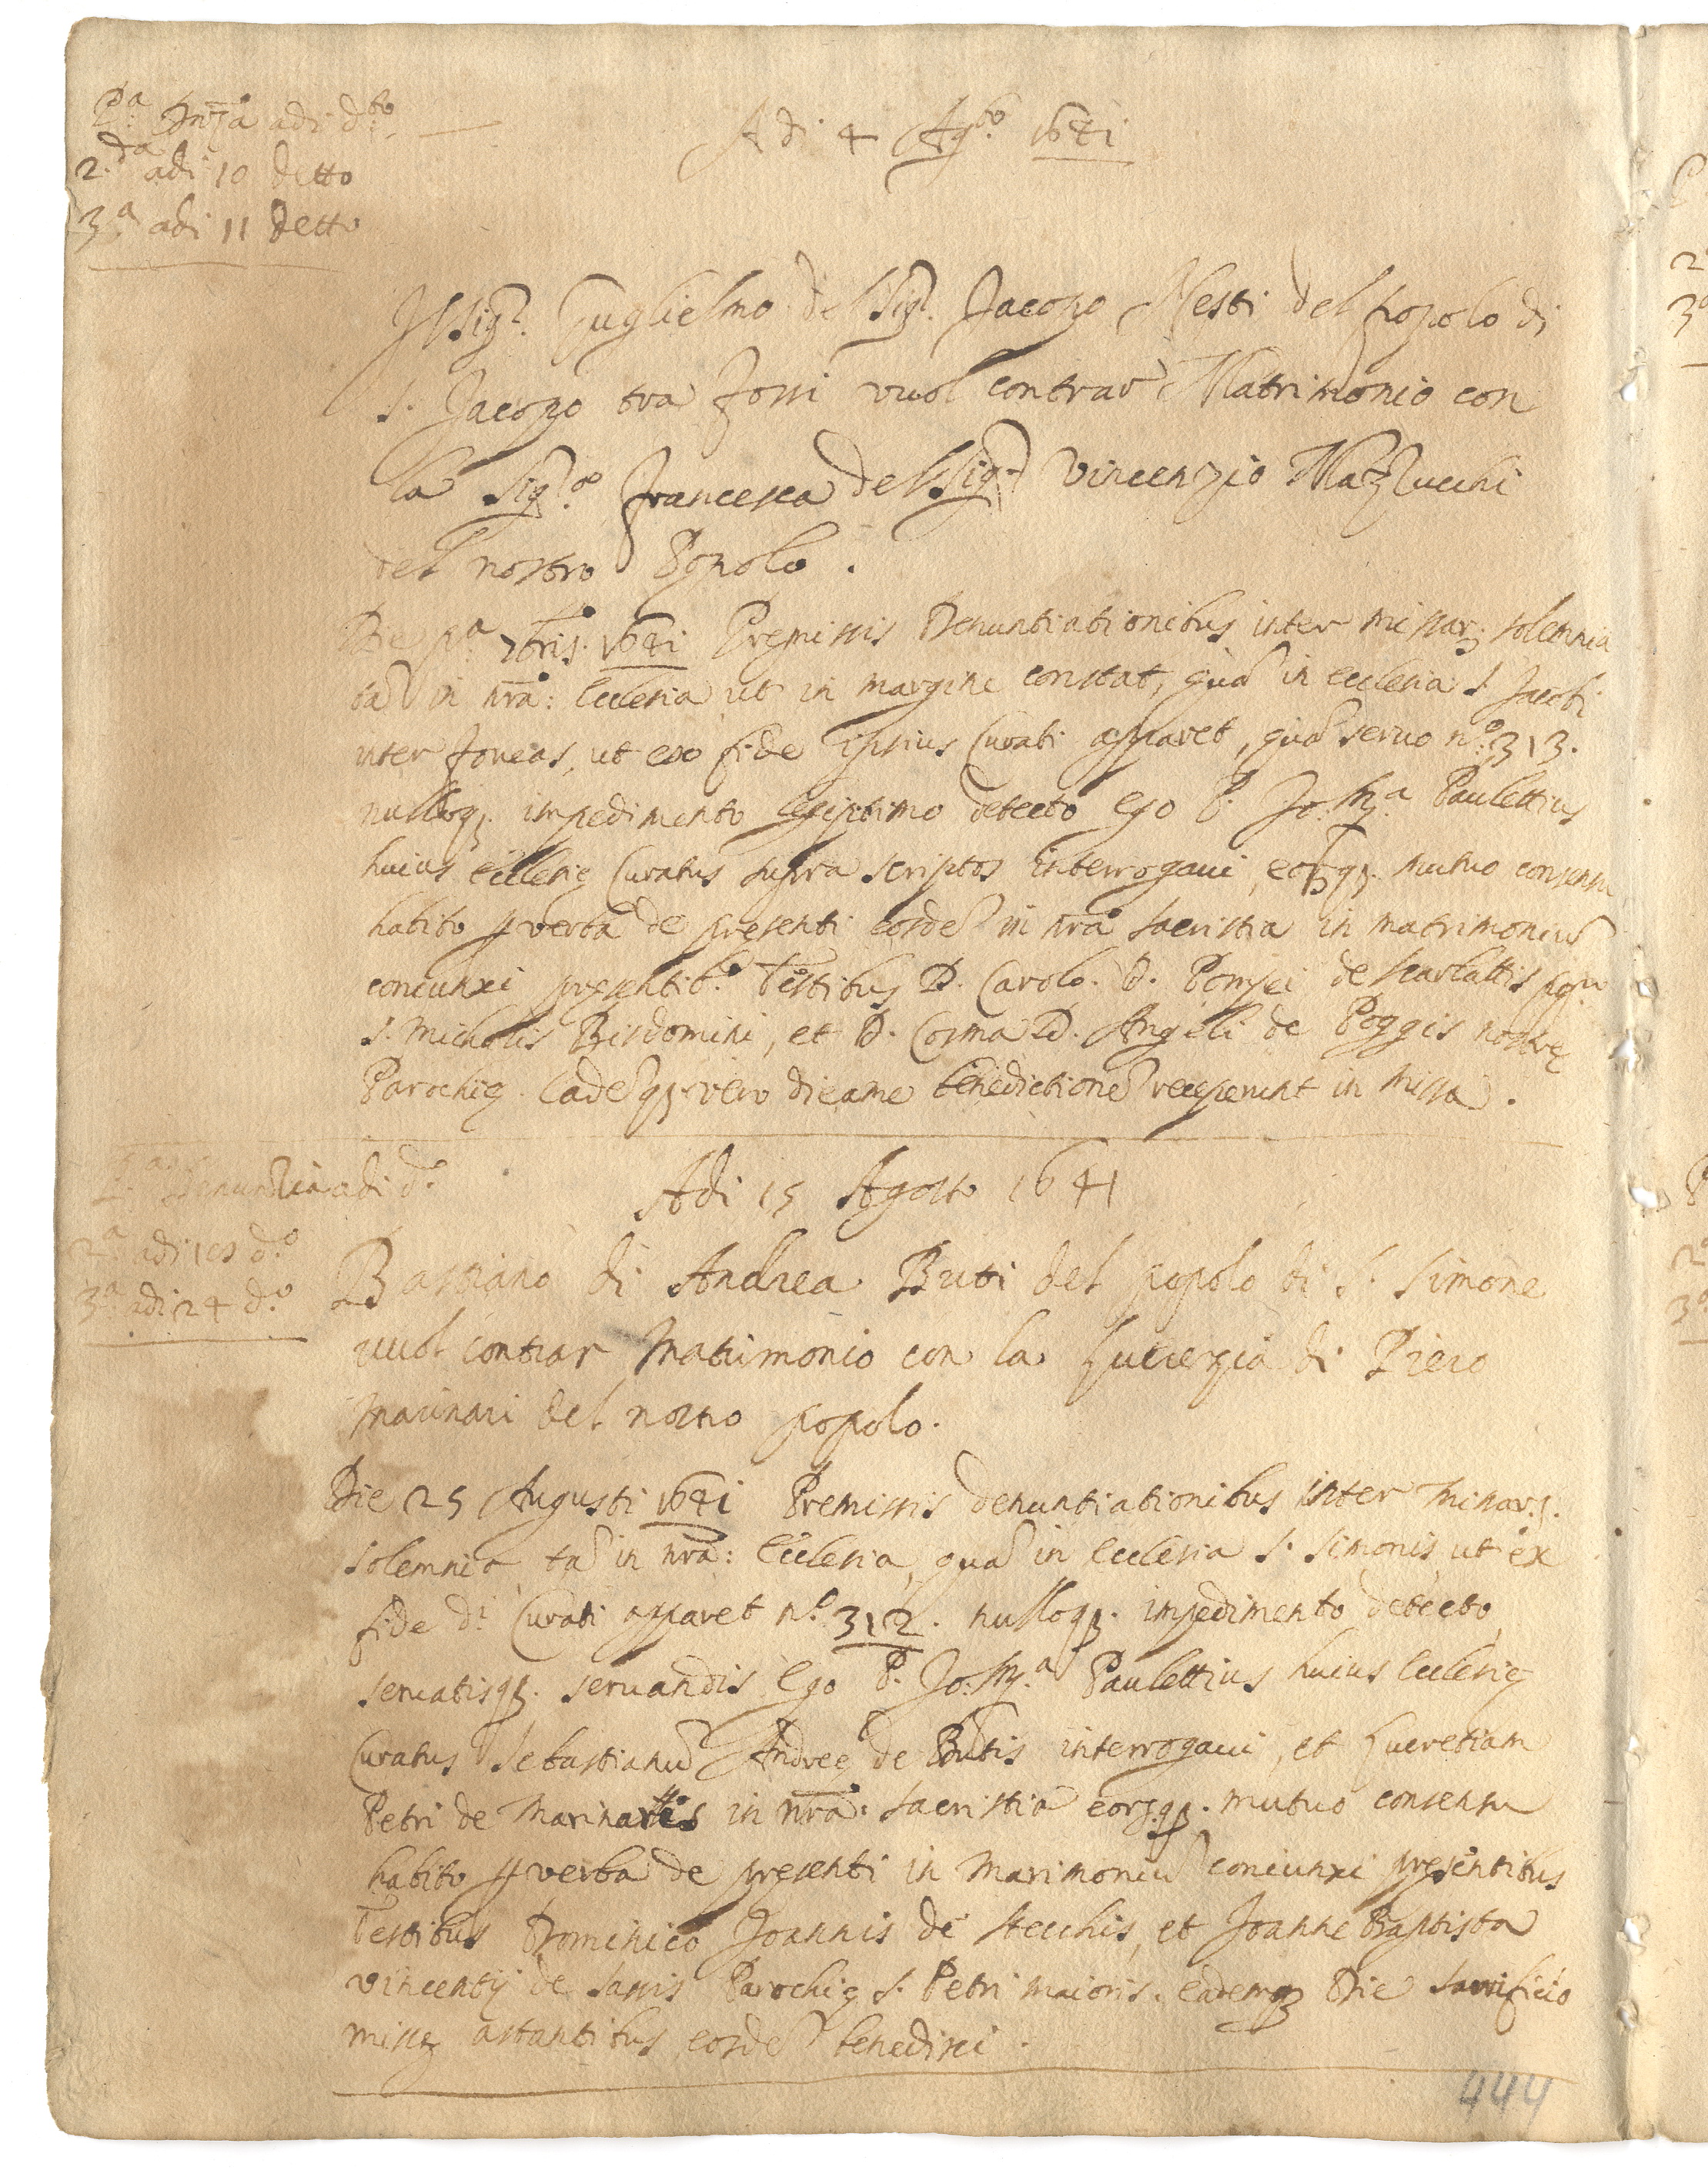 P.a Dn̅za adi d.to
2.da adi 10 detto
3.a adi 11 detto
Adi 4 Ag.to 1641
Il Sig.r Guglielmo del Sig.r Jacopo Nesti del popolo di
S. Jacopo tra fossi vuol contrar Matrimonio con
la Sig.ra Francesca del Sig.r Vincenzio Mazzucchi
del nostro Popolo.
Die p.a 7bris. 1641 Premissis Denuntiationibus inter missarz solemnia
ta͂ in nr̅a: Ecclesia ut in margine constat, qua͂ in ecclesia S. Jacobi
inter foveas, ut ex fide ipsius Curati apparet, qua͂ servo n.o 313.
nulloq3. impedimento legiptimo detecto ego P. Jo: M.a Paulettius
huius ecclesię Curatus supra scriptos interrogavi, eorq3. mutuo consensu
habito p verba de presenti eosde͂ in nr̅a sacristia in matrimoniu͂
coniunxi presentib.s Testibus D. Carolo. D. Pompei de Scarlattis pop.li
S. Michaelis Bisdomini, et D. Cosma D. Angeli de Poggis nostrę
Parochię. Eade͂q3. vero die a me benedictione͂ receperunt in missa.
P.a Denunzia adi d.o
2.a adi 18 d.o
3.a adi 24 d.o
Adi 15 Agosto 1641
Bastiano di Andrea Buti del popolo di S. Simone
vuol contrar Matrimonio con la Lucrezia di Piero
Marinari del nostro popolo.
Die 25 Augusti 1641 Premissis denuntiationibus inter Missar3.
solemnia ta͂ in nr̅a: Ecclesia, qua͂ in Ecclesia S. Simonis, ut ex
fide d.i Curati apparet n.o 312. nulloq3. impedimento detecto,
servatisq3. servandis Ego P. Jo: M.a Paulettius huius Ecclesię
Curatus Sebastianu͂ Andreę de Butis interrogavi, et Lucretiam
Petri de Marinariis in nr̅a: sacristia eorq3. mutuo consensu
habito p verba de presenti in Marimoniu͂ coniunxi presentibus
Testibus Dominico Joannis de Stecchis, et Joanne Baptista
Vincentij de Sassis Parochię S. Petri maioris. eademq3 Die sacrificio
missę astantibus eosde͂ benedixi.
444